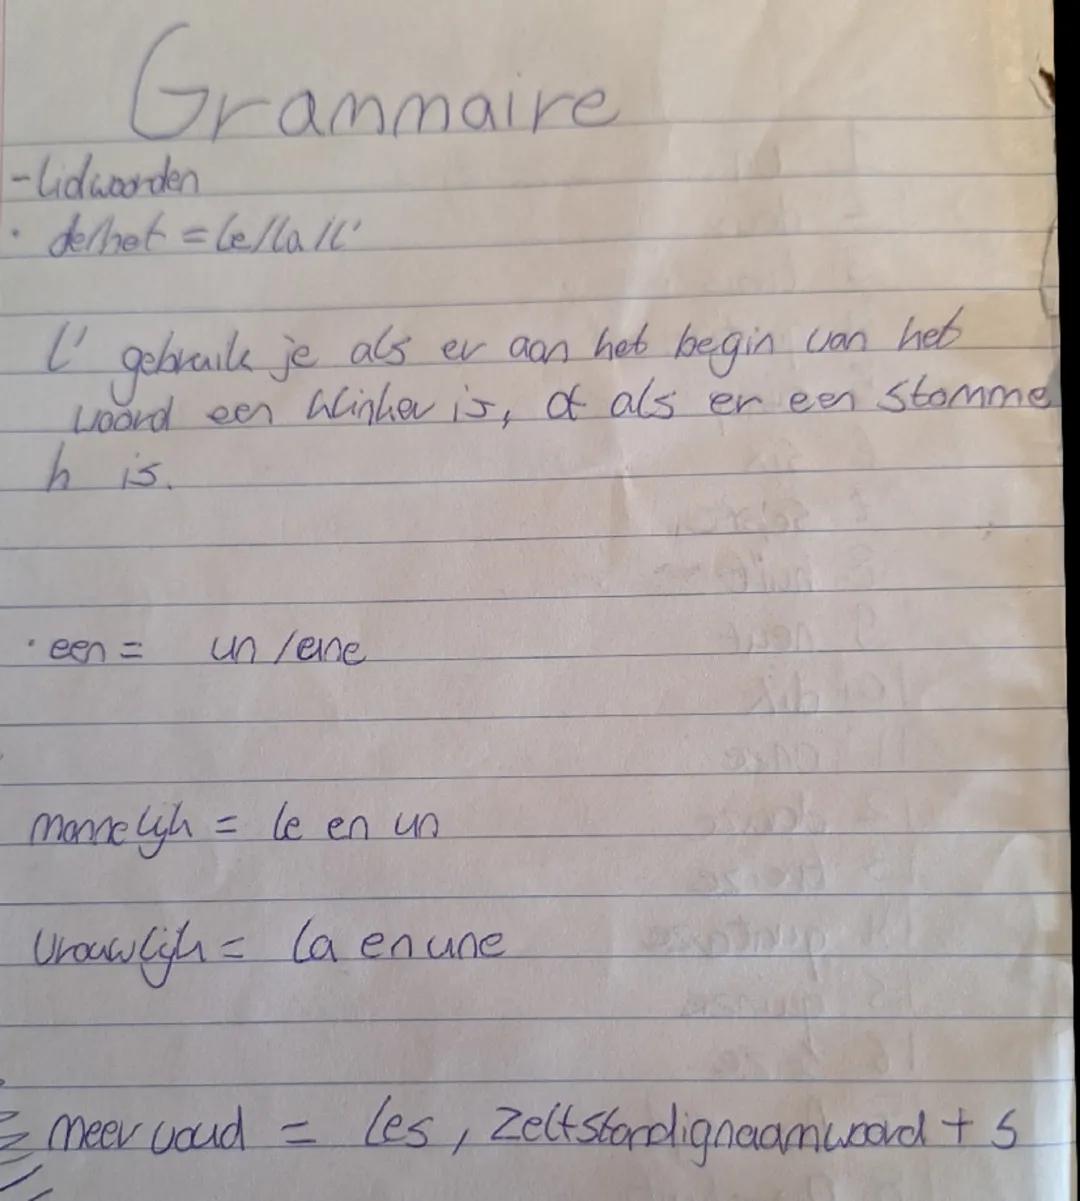 Grammaire
- lidwoorden
· de/het = le/la/l'
l' gebruik je als er aan het begin van het
woord een klinker is, of als er een stomme
h is.
· een = un / une
mannelijk = le en un
Vrouwlijk = la en une
meervoud = les, zelfstandignaamwoord + s